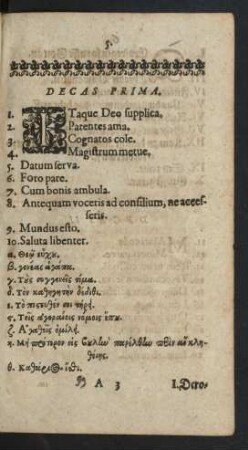 5.
DECAS PRIMA.
1. ITaque Deo supplica.
2. Parentes ama.
3. Cognatos cole.
4. Magistrum metue.
5. Datum serva.
6. Foro pare.
7. Cum bonis ambula.
8. Antequam voceris ad consilium, ne acces-
seris.
9. Mundus esto.
10. Saluta libenter.
α. Θεῷ εὔχου.
β. γονέας ἀγάπα.
γ. Τοὺς συγγενεῖς τίμα.
δ. Τὸν καθηγητὴν δείδιθι.
ε. Τὸ πιστευθέν σοι τήρει.
ς. Τοῖς ἀγοραίοις νόμοις
ζ. Ἀγαθοῖς ὁμίλει.
η. Μὴ πρότερον εἰς βουλὴν παρέλθῃς πρὶν
θείης.
θ. Καθάριος ἴσθι.
A 3
I. Dere-